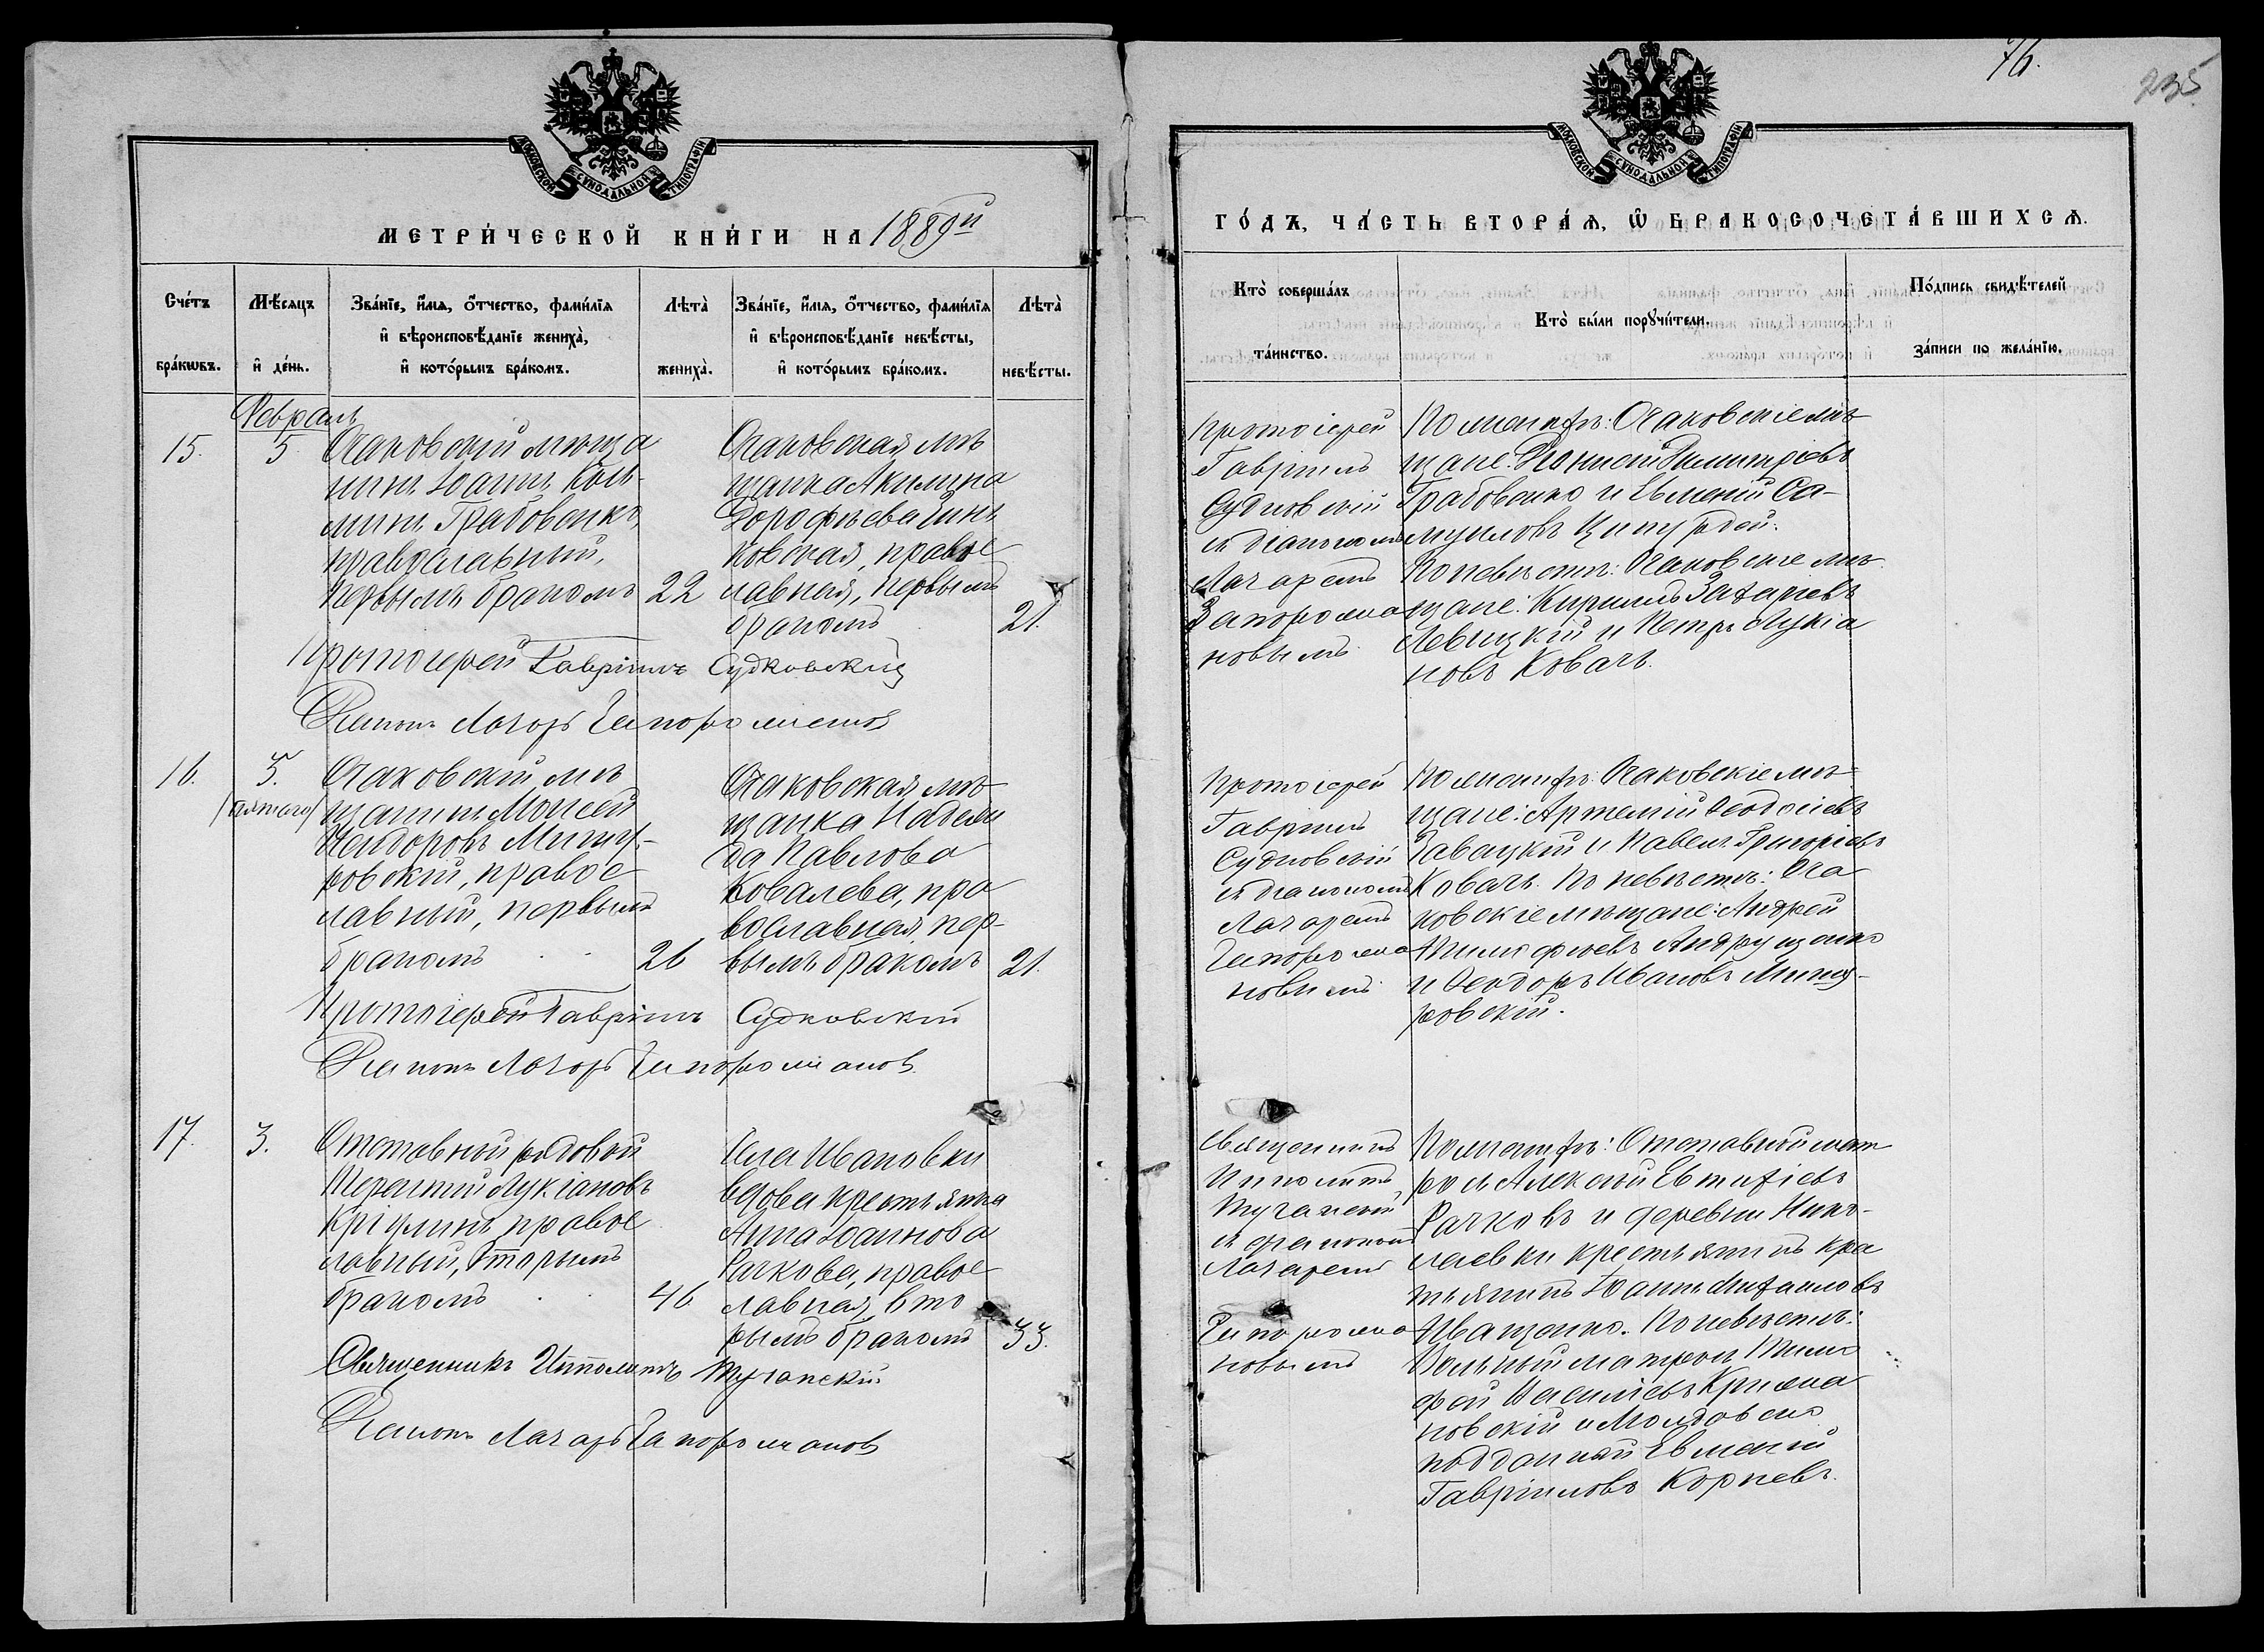 76.
235
МОСКОВСКОЙ СУНОДАЛЬНОЙ ТИПОГРАФІИ
МЕТРИ́ЧЕСКОЙ КНИ́ГИ НА 1889й
Сче́тъ бра́кѡвъ.
Мѣ́сяцъ и҆ де́нь.
Зва́нїе, и҆́мѧ, ѻ҆́тчество, фами́лїѧ
и҆ вѣроисповѣ́данїе жениха̀,
и҆ кото́рымъ бра́комъ.
Лѣта̀ жениха̀.
Зва́нїе, и҆́мѧ, ѻ҆́тчество, фами́лїѧ
и҆ вѣроисповѣ́данїе невѣ́сты,
и҆ кото́рымъ бра́комъ.
Лѣта̀ невѣ́сты.
Февраль
15.
5
Очаковскій мѣща
нинъ Іоаннъ Козь-
минъ Грабовенко,
православный,
первымъ бракомъ
22
Очаковская мѣ
щанка Акилина
Дорофѣева
ковская, правос
лавная, первымъ
бракомъ
21.
Протоіерей Гавріилъ Судковскій
Діаконъ Лазарь Чепорожановъ
16.
5.
(пятаго)
Очаковскій мѣ
щанинъ Моисей
Ѳеодоровъ Мишу-
ровскій, правос
лавный, первымъ
бракомъ
26
Очаковская мѣ-
щанка Надеж
да Павлова
Ковалева, пра
вославная, пер-
вымъ бракомъ
21.
Протоіерей Гавріилъ Судковскій
Діаконъ Лазарь
17.
3.
Отставной рядовой
Терентій Лукіановъ
правос
лавный, вторымъ
бракомъ
46
Села Ивановки
вдова крестьянка
Анна Іоаннова
Рачкова, правос
лавная, вто
рымъ бракомъ
33.
Священникъ Ипполитъ Тучапскій
Діаконъ Лазарь
МОСКОВСКОЙ СУНОДАЛЬНОЙ ТИПОГРАФІИ
ГО́ДЪ, ЧА́СТЬ ВТОРА́Ѧ, Ѽ БРАКОСОЧЕТА́ВШИХСѦ.
Кто̀ соверша́лъ та́инство.
Кто̀ бы́ли порꙋчи́тели.
По́дпись свидѣ́телей за́писи по жела́нїю.
Протоіерей
Гавріилъ
Судковскій
съ діакономъ
Лазаремъ
новымъ
По женихѣ: Очаковскіе мѣ
щане: Діонисій Димитріевъ
Грабовенко и Евменій Са-
муиловъ
По невѣстѣ: Очаковскіе мѣ
щане: Кириллъ Захаріевъ
Левицкій и Петръ Лукіа
новъ Ковачъ.
Протоіерей
Гавріилъ
Судковскій
съ діакономъ
Лазаремъ
новымъ
По женихѣ: Очаковскіе мѣ-
щане: Артемій Ѳеодосіевъ
и Павелъ Григоріевъ
Ковачъ. По невѣстѣ: Оча
ковскіе мѣщане: Андрей
Тимофѣевъ Андрущенко
и Ѳеодоръ Ивановъ Мишу-
ровскій.
Священникъ
Ипполитъ
Тучапскій
съ діакономъ
Лазаремъ
новымъ
По женихѣ: Отставный мат
росъ Алексѣй Евтихіевъ
Рачковъ и деревни Нико-
лаевки крестьянинъ кре
тьянинъ Іоаннъ Михаиловъ
Иващенко. По невѣстѣ:
Вольный матросъ Тимо
фей Василіевъ
новскій и Молдавско
подданный Евменій
Гавріиловъ Корневъ.